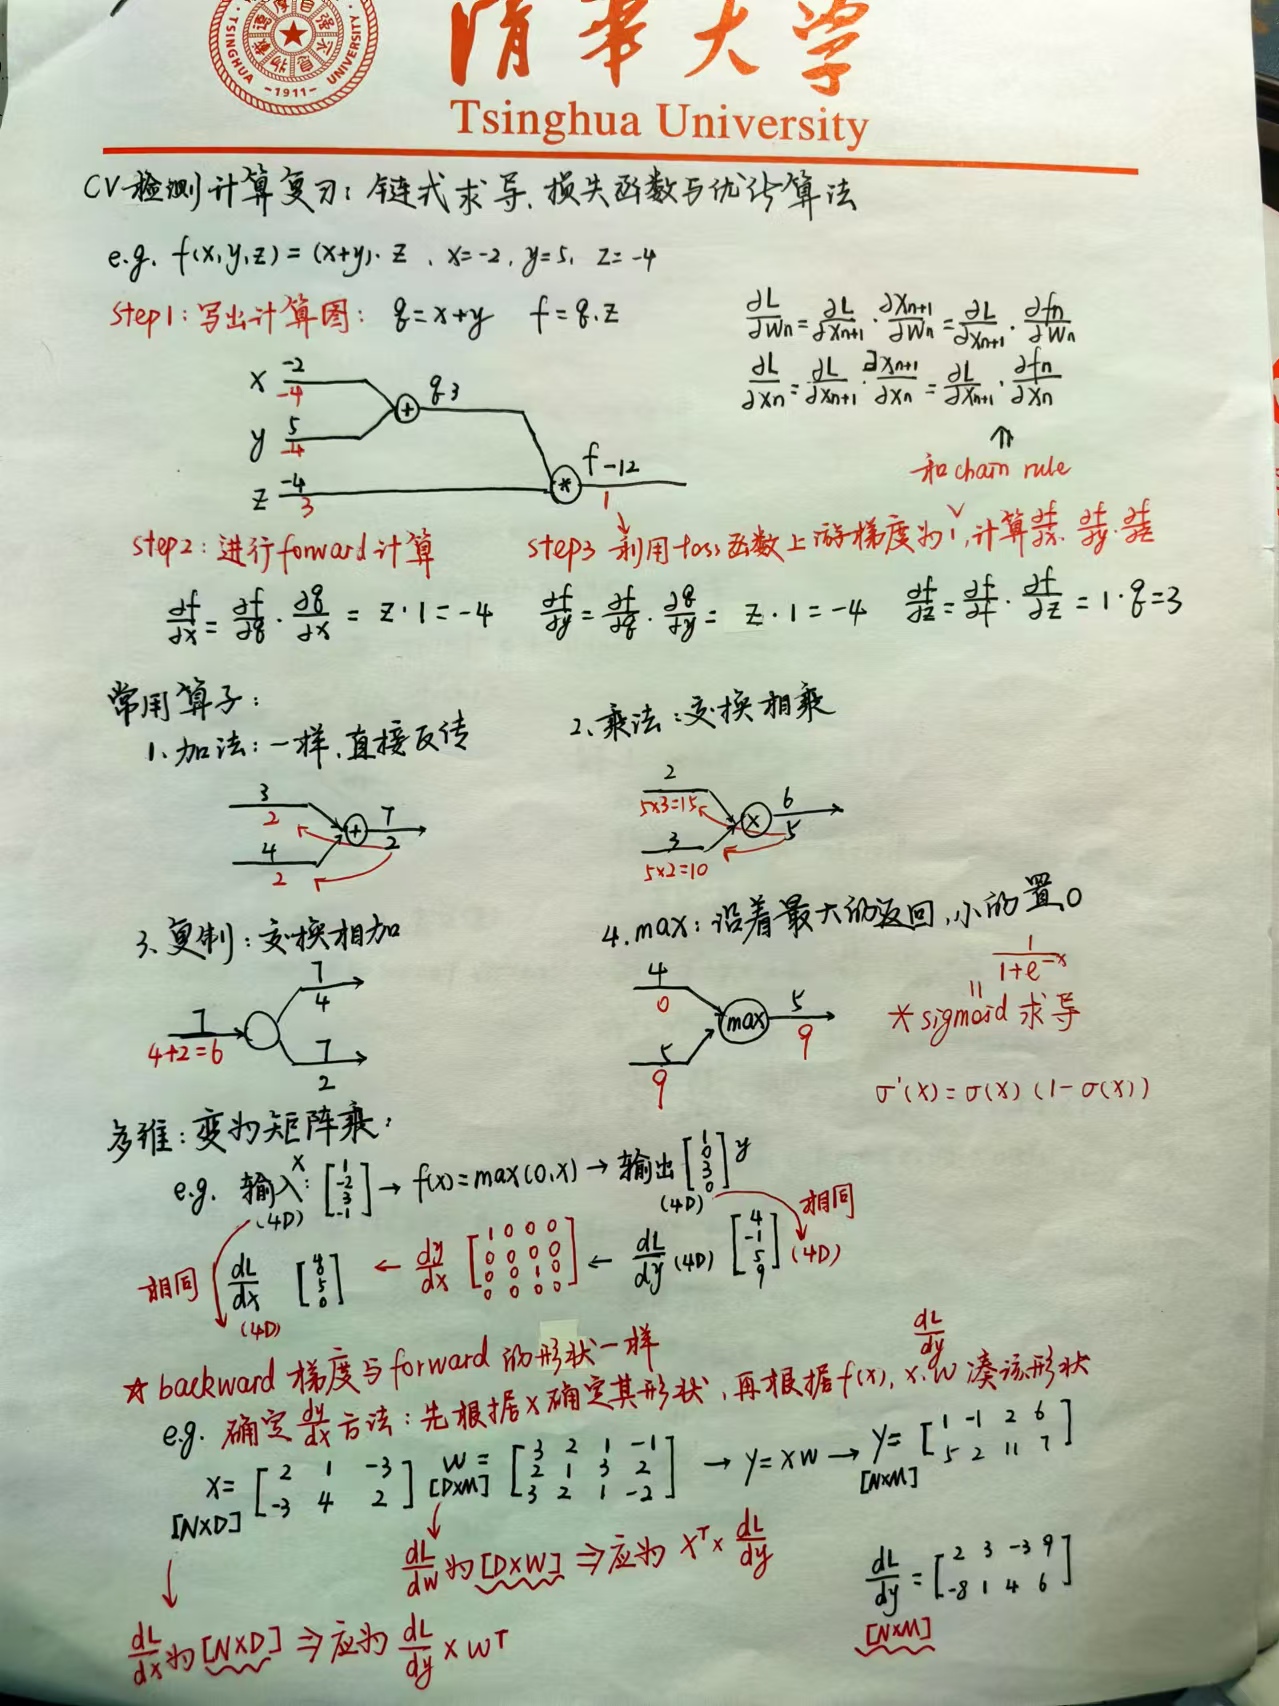 TSINGHUA UNIVERSITY
自强不息
厚德载物
-1911-
清华大学
Tsinghua University
CV-检测计算复习: 链式求导、损失函数与优化算法
e.g. f(x,y,z)=(x+y)·z 、x=-2, y=5, z=-4
step1: 写出计算图: q=x+y f=q.z
∂L/∂Wn = ∂L/∂Xn+1 · ∂Xn+1/∂Wn = ∂L/∂Xn+1 · ∂fn/∂Wn
∂L/∂Xn = ∂L/∂Xn+1 · ∂Xn+1/∂Xn = ∂L/∂Xn+1 · ∂fn/∂Xn
⇑
和chain rule
x -2 -4
y 5 -4
z -4 3
+ q 3
* f -12 1
step2: 进行forward计算
step3 利用loss函数上游梯度为1,计算∂f/∂x. ∂f/∂y. ∂f/∂z
∂f/∂x = ∂f/∂q · ∂q/∂x = z·1=-4
∂f/∂y = ∂f/∂q · ∂q/∂y = z·1=-4
∂f/∂z = ∂f/∂f · ∂f/∂z = 1·q=3
常用算子:
1、加法: 一样、直接反传
3 2
4 2
+ 7 2
2、乘法: 交换相乘
2 5x3=15
3 5x2=10
x 6 5
3、复制: 交换相加
7 4+2=6
7 4
7 2
4. max: 沿着最大的返回,小的置0
4 0
5 9
max 5 9
1/(1+e^-x)
=
* sigmoid 求导
σ'(x)=σ(x)(1-σ(x))
多维: 变为矩阵乘,
e.g. 输入x: [1 -2 3 -1] → f(x)=max(0,x) → 输出 [1 0 3 0] y
(4D) (4D) 相同
相同 dL/dx [4 0 5 0] ← dy/dx [1 0 0 0 0 0 0 0 0 0 1 0 0 0 0 0] ← dL/dy (4D) [4 -1 5 9] (4D)
(4D)
☆ backward 梯度与forward 的形状一样
dL/dy
e.g. 确定dy/dx方法: 先根据x确定其形状, 再根据f(x), x, W 凑该形状
X= [2 1 -3 -3 4 2] W= [3 2 1 -1 2 1 3 2 3 2 1 -2] → Y=XW → Y= [1 -1 2 6 5 2 11 7]
[NXD] [DXM] [NXM]
dL/dw 为 [DXW] ⇒ 应为 X^T × dL/dy
dL/dy = [2 3 -3 9 -8 1 4 6]
[NXM]
dL/dx 为 [NXD] ⇒ 应为 dL/dy × W^T